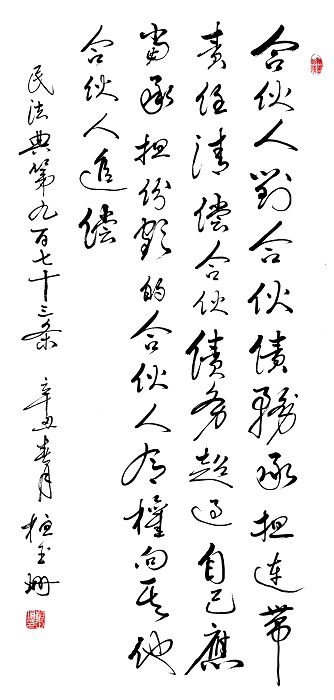 合伙人對合伙债務承担连带
责任清偿合伙债务超过自己應
当承担份额的合伙人有權向其他
合伙人追偿
民法典第九百七十三条 辛丑春月 桓玉珊